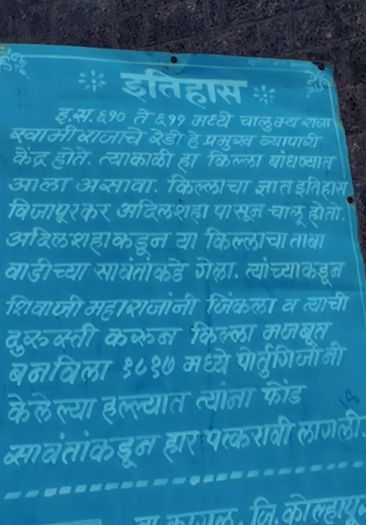 इतिहास
इ.स.६१० ते ६११ मध्ये चालुक्य राजा
स्वामीराजाचे रेडी हे प्रमुख व्यापारी
केंद्र होते. त्याकाळी हा किल्ला बांधण्यात
आला असावा. किल्लाचा ज्ञात इतिहास
विजापूरकर अदिलशहा पासून चालू होतो.
अदिलशहाकडून या किल्लाचा ताबा
वाडीच्या सावंतांकडे गेला. त्यांच्याकडून
शिवाजी महाराजांनी जिंकला व त्याची
दुरुस्ती करून किल्ला मजबूत
बनविला १८१७ मध्ये पोर्तुगिजांनी
केलेल्या हल्ल्यात त्यांना फोंड
सावंतांकडून हार पत्करावी लागली.
कागल. जि.कोल्हापू